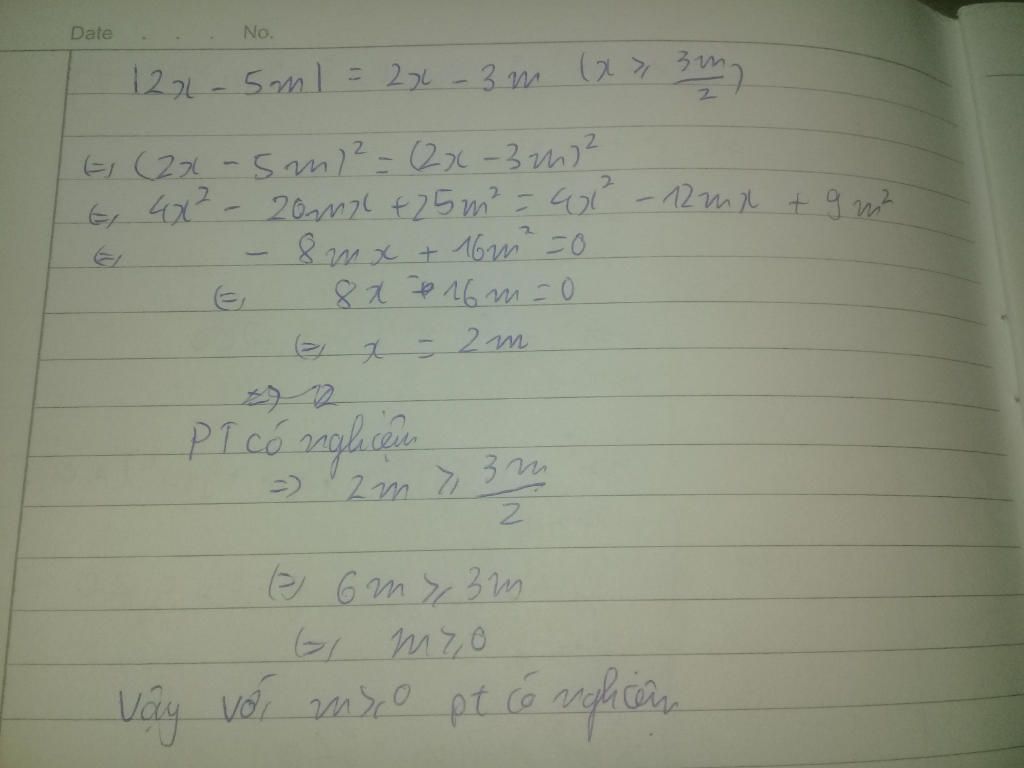 Date . . . No.
|2x - 5m| = 2x - 3m (x ⩾ 3m/2)
⇔ (2x - 5m)² = (2x - 3m)²
⇔ 4x² - 20mx + 25m² = 4x² - 12mx + 9m²
⇔ - 8mx + 16m² = 0
⇔ 8x - 16m = 0
⇔ x = 2m
PT có nghiệm
=> 2m ⩾ 3m/2
⇔ 6m ⩾ 3m
⇔ m ⩾ 0
Vậy với m ⩾ 0 pt có nghiệm